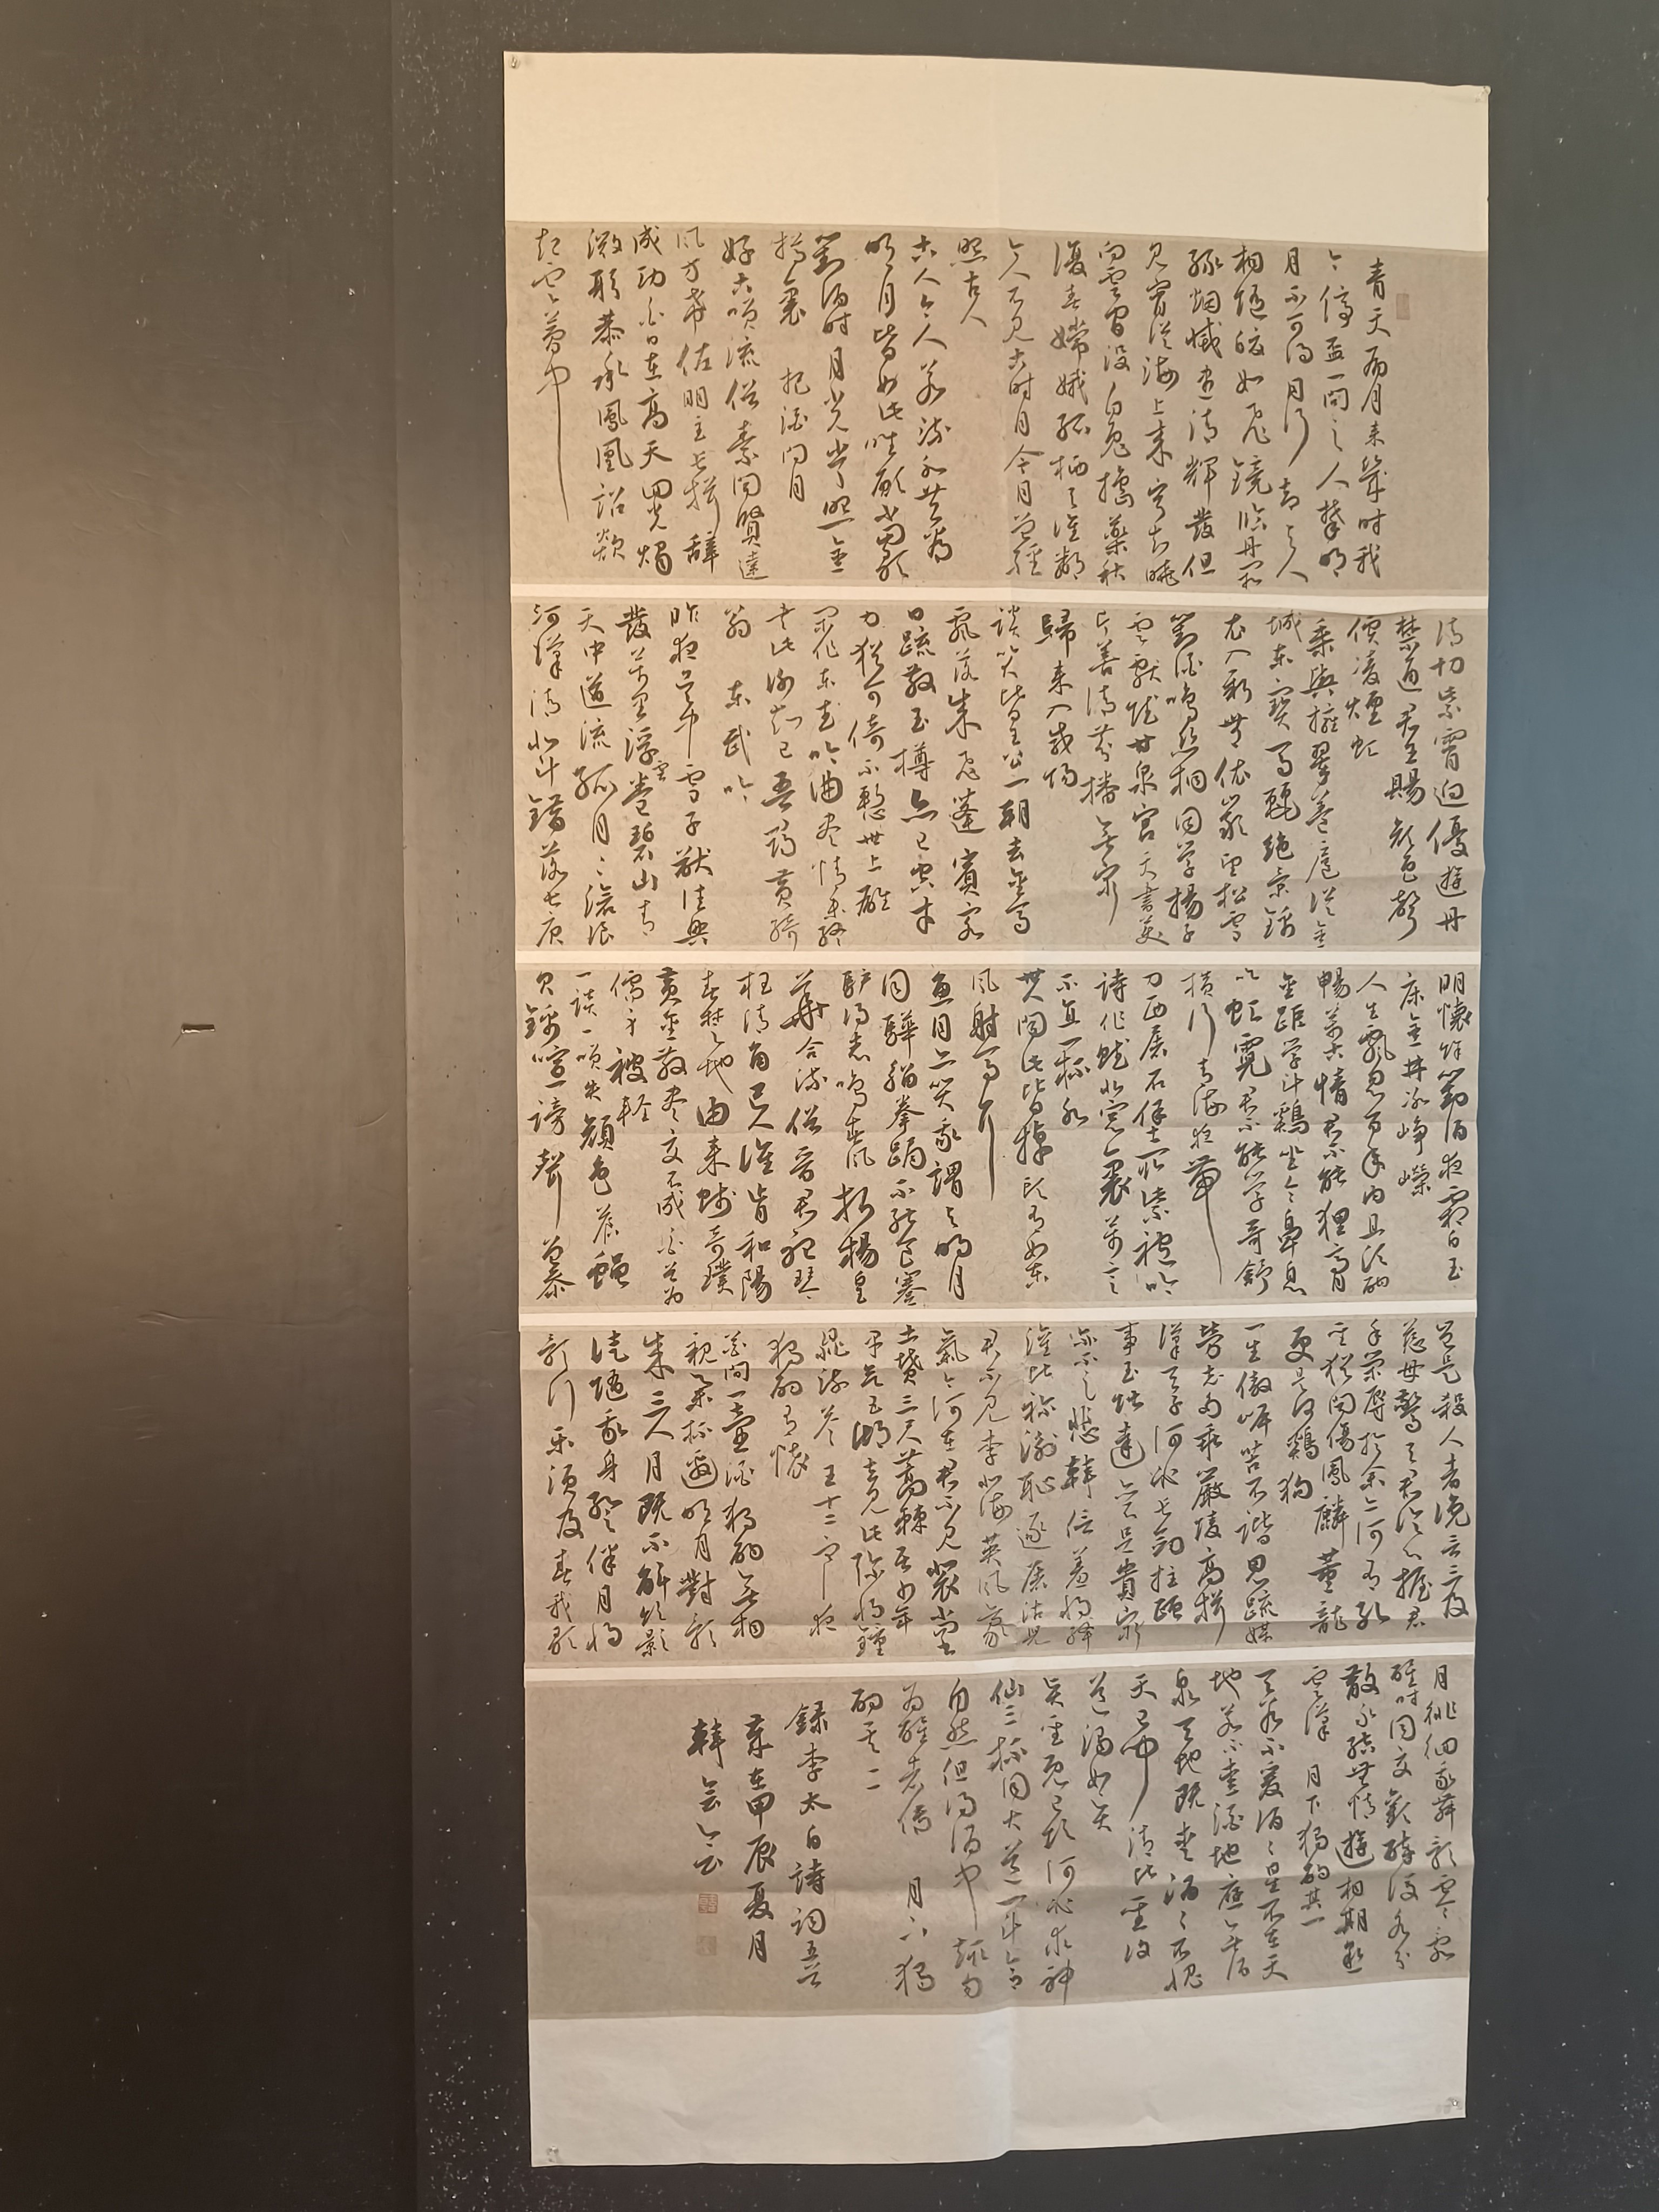 青天有月来幾時我
今停盃一問之人攀明
月不可得月行却与人
相隨皎如飛鏡臨丹闕
緑烟滅盡清輝發但
見宵従海上来寧知曉
向雲間没白兔搗藥秋
復春嫦娥孤栖与誰鄰
今人不見古時月今月曾經
照古人
古人今人若流水共看
明月皆如此唯願當歌
對酒時月光常照金
樽裏 把酒問月
好古笑流俗素聞賢達
風方希佐明主長揖辭
成功白日在高天囬光燭
微躬恭承鳳凰詔欻
起雲蘿中
清切紫霄迥優遊丹
禁通君王賜顔色聲
價凌煙虹
乘輿擁翠蓋扈従金
城東寶馬麗絶景錦
衣入新豊依巖望松雪
對酒鳴絲桐因學揚子
雲獻賦甘泉宮天書美
片善清芬播無窮
歸来入咸陽
談笑皆王公一朝去金馬
飄落成飛蓬賓客
日疏散玉樽亦已空才
力猶可倚不慙世上雄
閑作東武吟曲盡情未終
書此謝知己吾尋黄綺
翁 東武吟
昨夜吳中雪子猷佳興
發萬里浮雲卷碧山青
天中道流孤月々滄浪
河漢清北斗錯落長庚
明懷餘對酒夜霜白玉
床金井冰崢嶸
人生飄忽百年内且須酣
暢萬古情君不能狸膏
金距學斗鷄坐令鼻息
吹虹霓君不能學哥舒
横行青海夜帶
刀西屠石堡取紫袍吟
詩作賦北窓裏萬言
不直一杯水
世人聞此皆掉頭有如東
風射馬耳
魚目亦笑我謂与明月
同驊騮拳跼不能食蹇
驢得志鳴春風折楊皇
華合流俗晉君聽琴
枉清角巴人誰肯和陽
春楚地由来賤奇璞
黄金散盡交不成白首為
儒身被輕
一談一笑失顔色蒼蠅
貝錦喧謗聲 曾參
豈是殺人者讒言三及
慈母驚与君論心握君
手榮辱於余亦何有孔
聖猶聞傷鳳麟董龍
更是何鷄狗
一生傲岸苦不諧恩疏媒
勞志多乖嚴陵高揖
漢天子何必長劍拄頤
事玉階達亦不足貴窮
亦不足悲韓信羞將絳
灌比禰衡恥逐屠沽兒
君不見李北海英風豪
氣今何在君不見裴尚書
土墳三尺蒿棘居少年
早欲五湖去見此彌將鐘
鼎疏 答王十二寒夜
獨酌有懷
花間一壺酒獨酌無相
親舉杯邀明月對影
成三人月既不解飲影
徒隨我身暫伴月將
影行樂須及春我歌
月徘徊我舞影零亂
醒時同交歡醉後各分
散永結無情遊相期邈
雲漢 月下獨酌其一
天若不愛酒々星不在天
地若不愛酒地應無酒
泉天地既愛酒々不愧
天已聞清比聖復
道濁如賢
賢聖既已飲何必求神
仙三杯通大道一斗合
自然但得酒中趣勿
為醒者傳 月下獨
酌其二
録李太白詩詞五首
歲在甲辰夏月